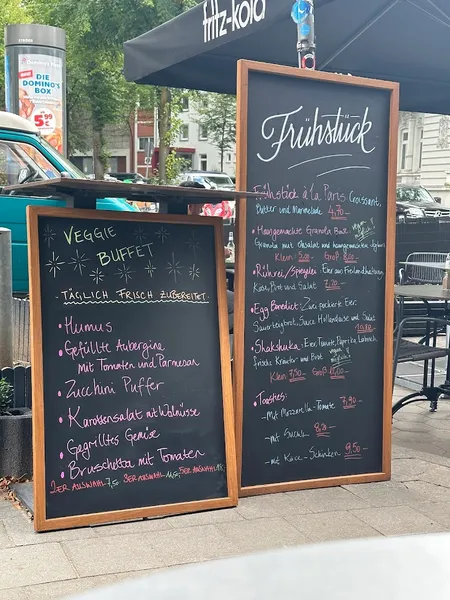 fritz-kola
DIE
DOMINO'S
BOX
5.99
VEGGIE
BUFFET
TÄGLICH FRISCH ZUBEREITET
• Humus
• Gefüllte Aubergine
mit Tomaten und Parmesan
• Zucchini Puffer
• Karottensalat mit Walnüsse
• Gegrilltes Gemüse
• Bruschetta mit Tomaten
2ER AUSWAHL 7,5 3ER AUSWAHL 5ER AUSWAHL
Frühstück
Frühstück à la Paris Croissant,
Butter und Marmelade 4,70
• Hausgemachte Granola Bowl
Granola mit Obstsalat und hausgemachtem Joghurt
Klein 5,00 Groß 8,00
• Rührei/Spiegelei: Eier aus Freilandhaltung
Käse, Brot und Salat 7,20
• Egg Benedict: Zwei pochierte Eier,
Sauerteigbrot, Sauce Hollandaise und Salat
10,80
• Shakshuka: Eier, Tomate, Paprika, Lauch,
frische Kräuter und Brot
Klein 7,50 Groß
• Toasties:
- Mit Mozzarella-Tomate 7,90
- mit Sucuk 8,20
- mit Käse-Schinken 9,50